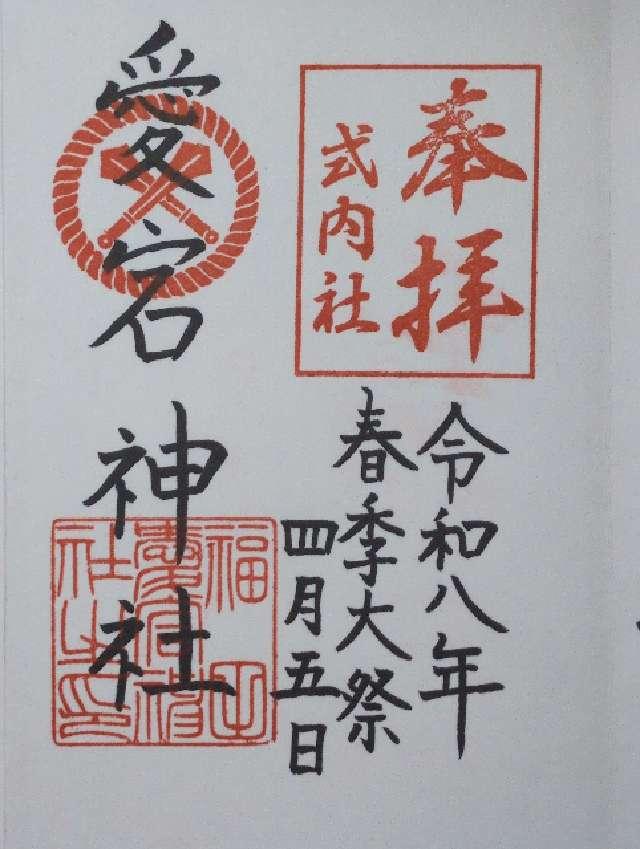 奉拝
式内社
令和八年
春季大祭
四月五日
愛宕神社
福田
愛宕神
社之印